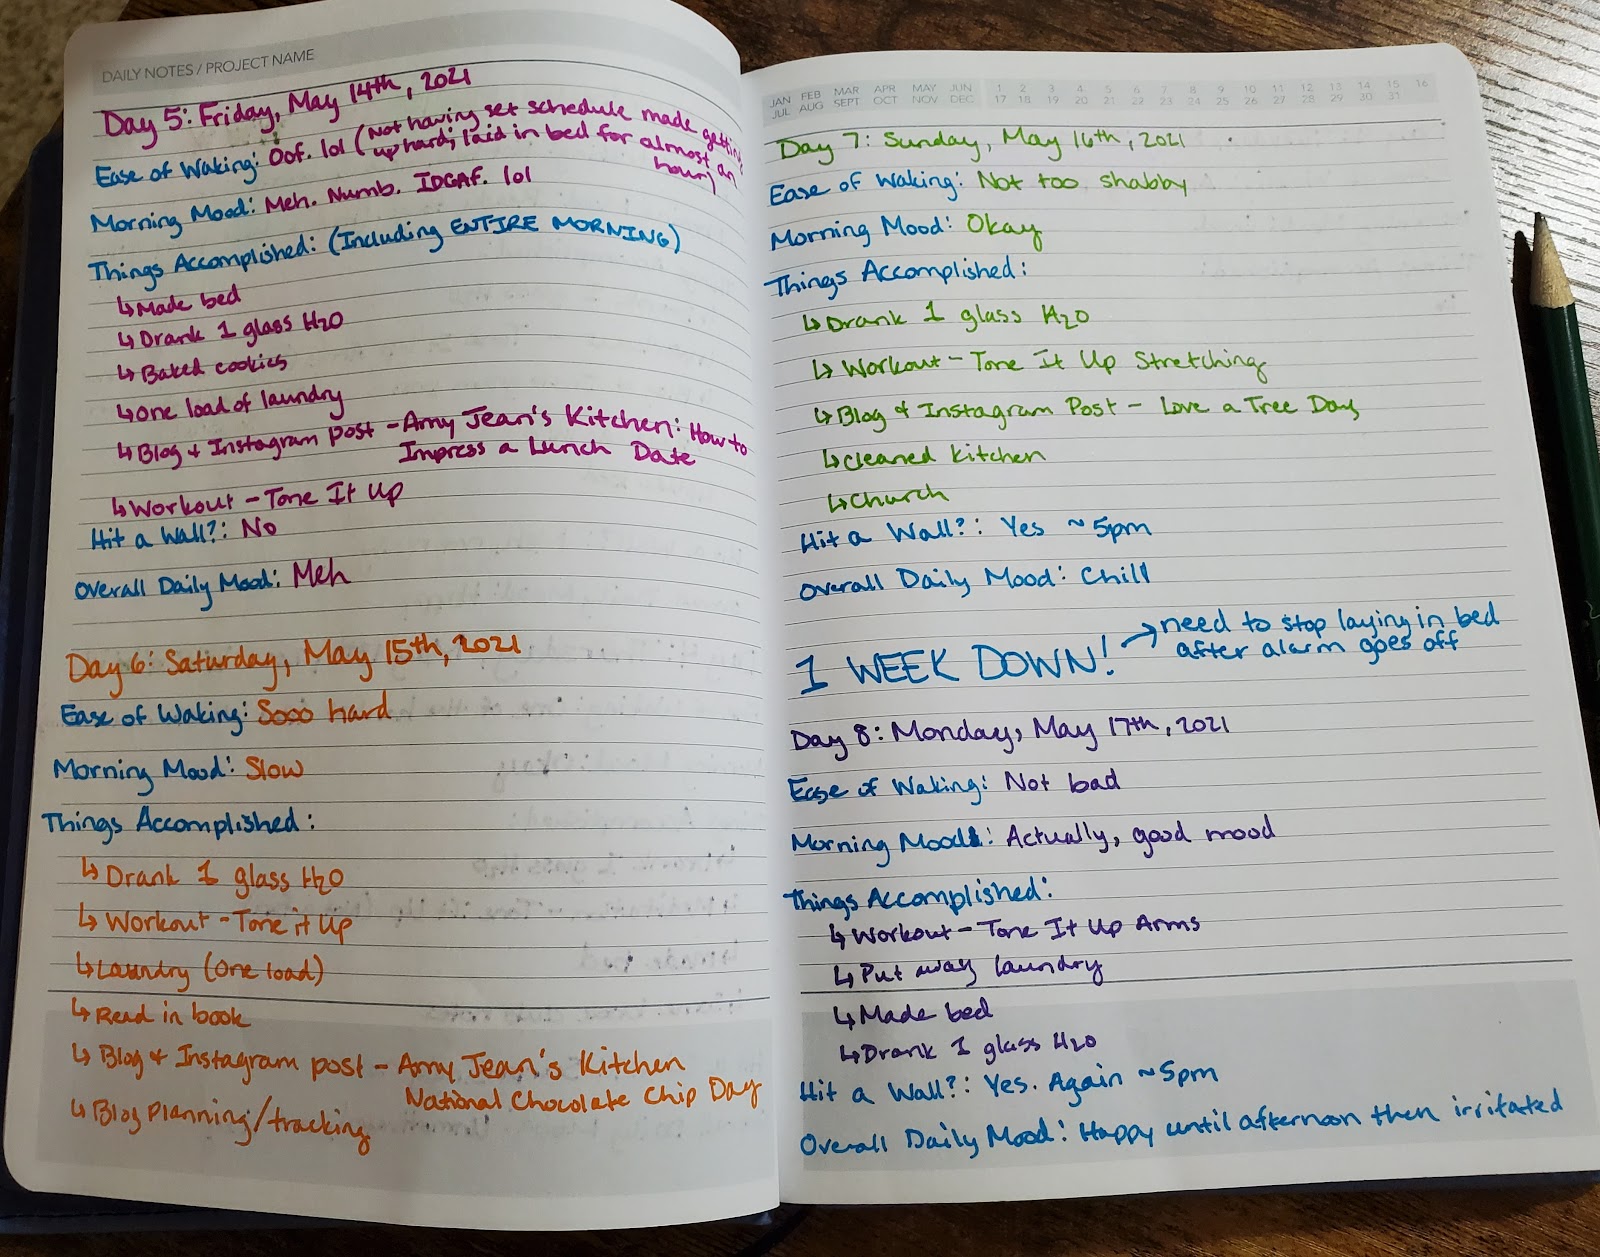 DAILY NOTES / PROJECT NAME
Day 5: Friday, May 14th, 2021
Ease of Waking: Oof. lol (Not having set schedule made getting
up hard; laid in bed for almost an
hour)
Morning Mood: Meh. Numb. IDGAF. lol
Things Accomplished: (Including ENTIRE MORNING)
↳ Made bed
↳ Drank 1 glass H2O
↳ Baked cookies
↳ One load of laundry
↳ Blog + Instagram post - Amy Jean's Kitchen: How to
Impress a Lunch Date
↳ Workout - Tone It Up
Hit a Wall?: No
Overall Daily Mood: Meh
Day 6: Saturday, May 15th, 2021
Ease of Waking: Sooo hard
Morning Mood: Slow
Things Accomplished:
↳ Drank 1 glass H2O
↳ Workout - Tone it Up
↳ Laundry (one load)
↳ Read in book
↳ Blog + Instagram post - Amy Jean's Kitchen
National Chocolate Chip Day
↳ Blog Planning/tracking
JAN FEB MAR APR MAY JUN 1 2 3 4 5 6 7 8 9 10 11 12 13 14 15 16
JUL AUG SEPT OCT NOV DEC 17 18 19 20 21 22 23 24 25 26 27 28 29 30 31
Day 7: Sunday, May 16th, 2021
Ease of Waking: Not too shabby
Morning Mood: Okay
Things Accomplished:
↳ Drank 1 glass H2O
↳ Workout - Tone It Up Stretching
↳ Blog + Instagram Post - Love a Tree Day
↳ Cleaned kitchen
↳ Church
Hit a Wall?: Yes ~5pm
Overall Daily Mood: Chill
1 WEEK DOWN! → need to stop laying in bed
after alarm goes off
Day 8: Monday, May 17th, 2021
Ease of Waking: Not bad
Morning Mood: Actually, good mood
Things Accomplished:
↳ Workout - Tone It Up Arms
↳ Put away laundry
↳ Made bed
↳ Drank 1 glass H2O
Hit a Wall?: Yes. Again ~5pm
Overall Daily Mood: Happy until afternoon then irritated